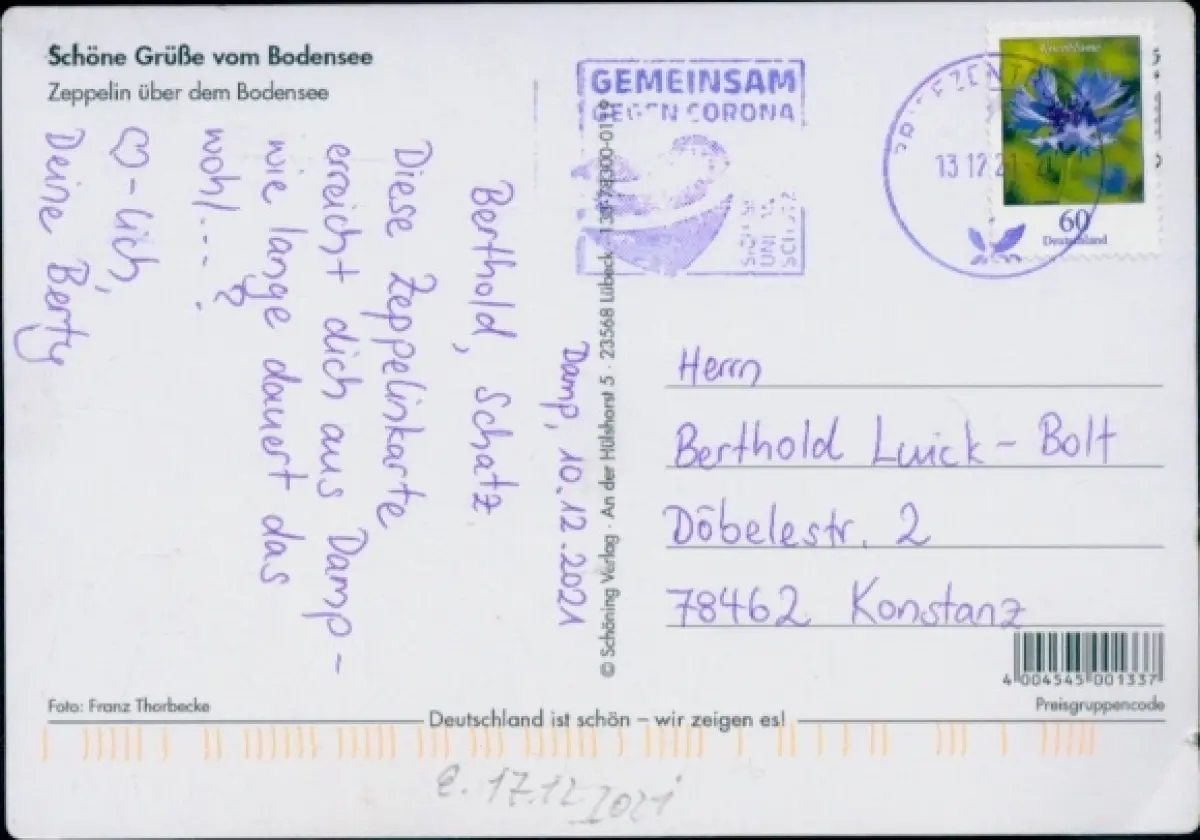 Schöne Grüße vom Bodensee
Zeppelin über dem Bodensee
Damp, 10.12.2021
Berthold, Schatz
Diese Zeppelinkarte
erreicht dich aus Damp -
wie lange dauert das
wohl....?
♡-lich,
Deine Berty
© Schöning Verlag · An der Hülshorst 5 · 23568 Lübeck
GEMEINSAM
GEGEN CORONA
BRIEFZENTR
13 12 21
Kornblume
60
Deutschland
Herrn
Berthold Luick-Bolt
Döbelestr. 2
78462 Konstanz
4 004545 001337
Preisgruppencode
Foto: Franz Thorbecke
Deutschland ist schön – wir zeigen es!
e. 17.12.2021